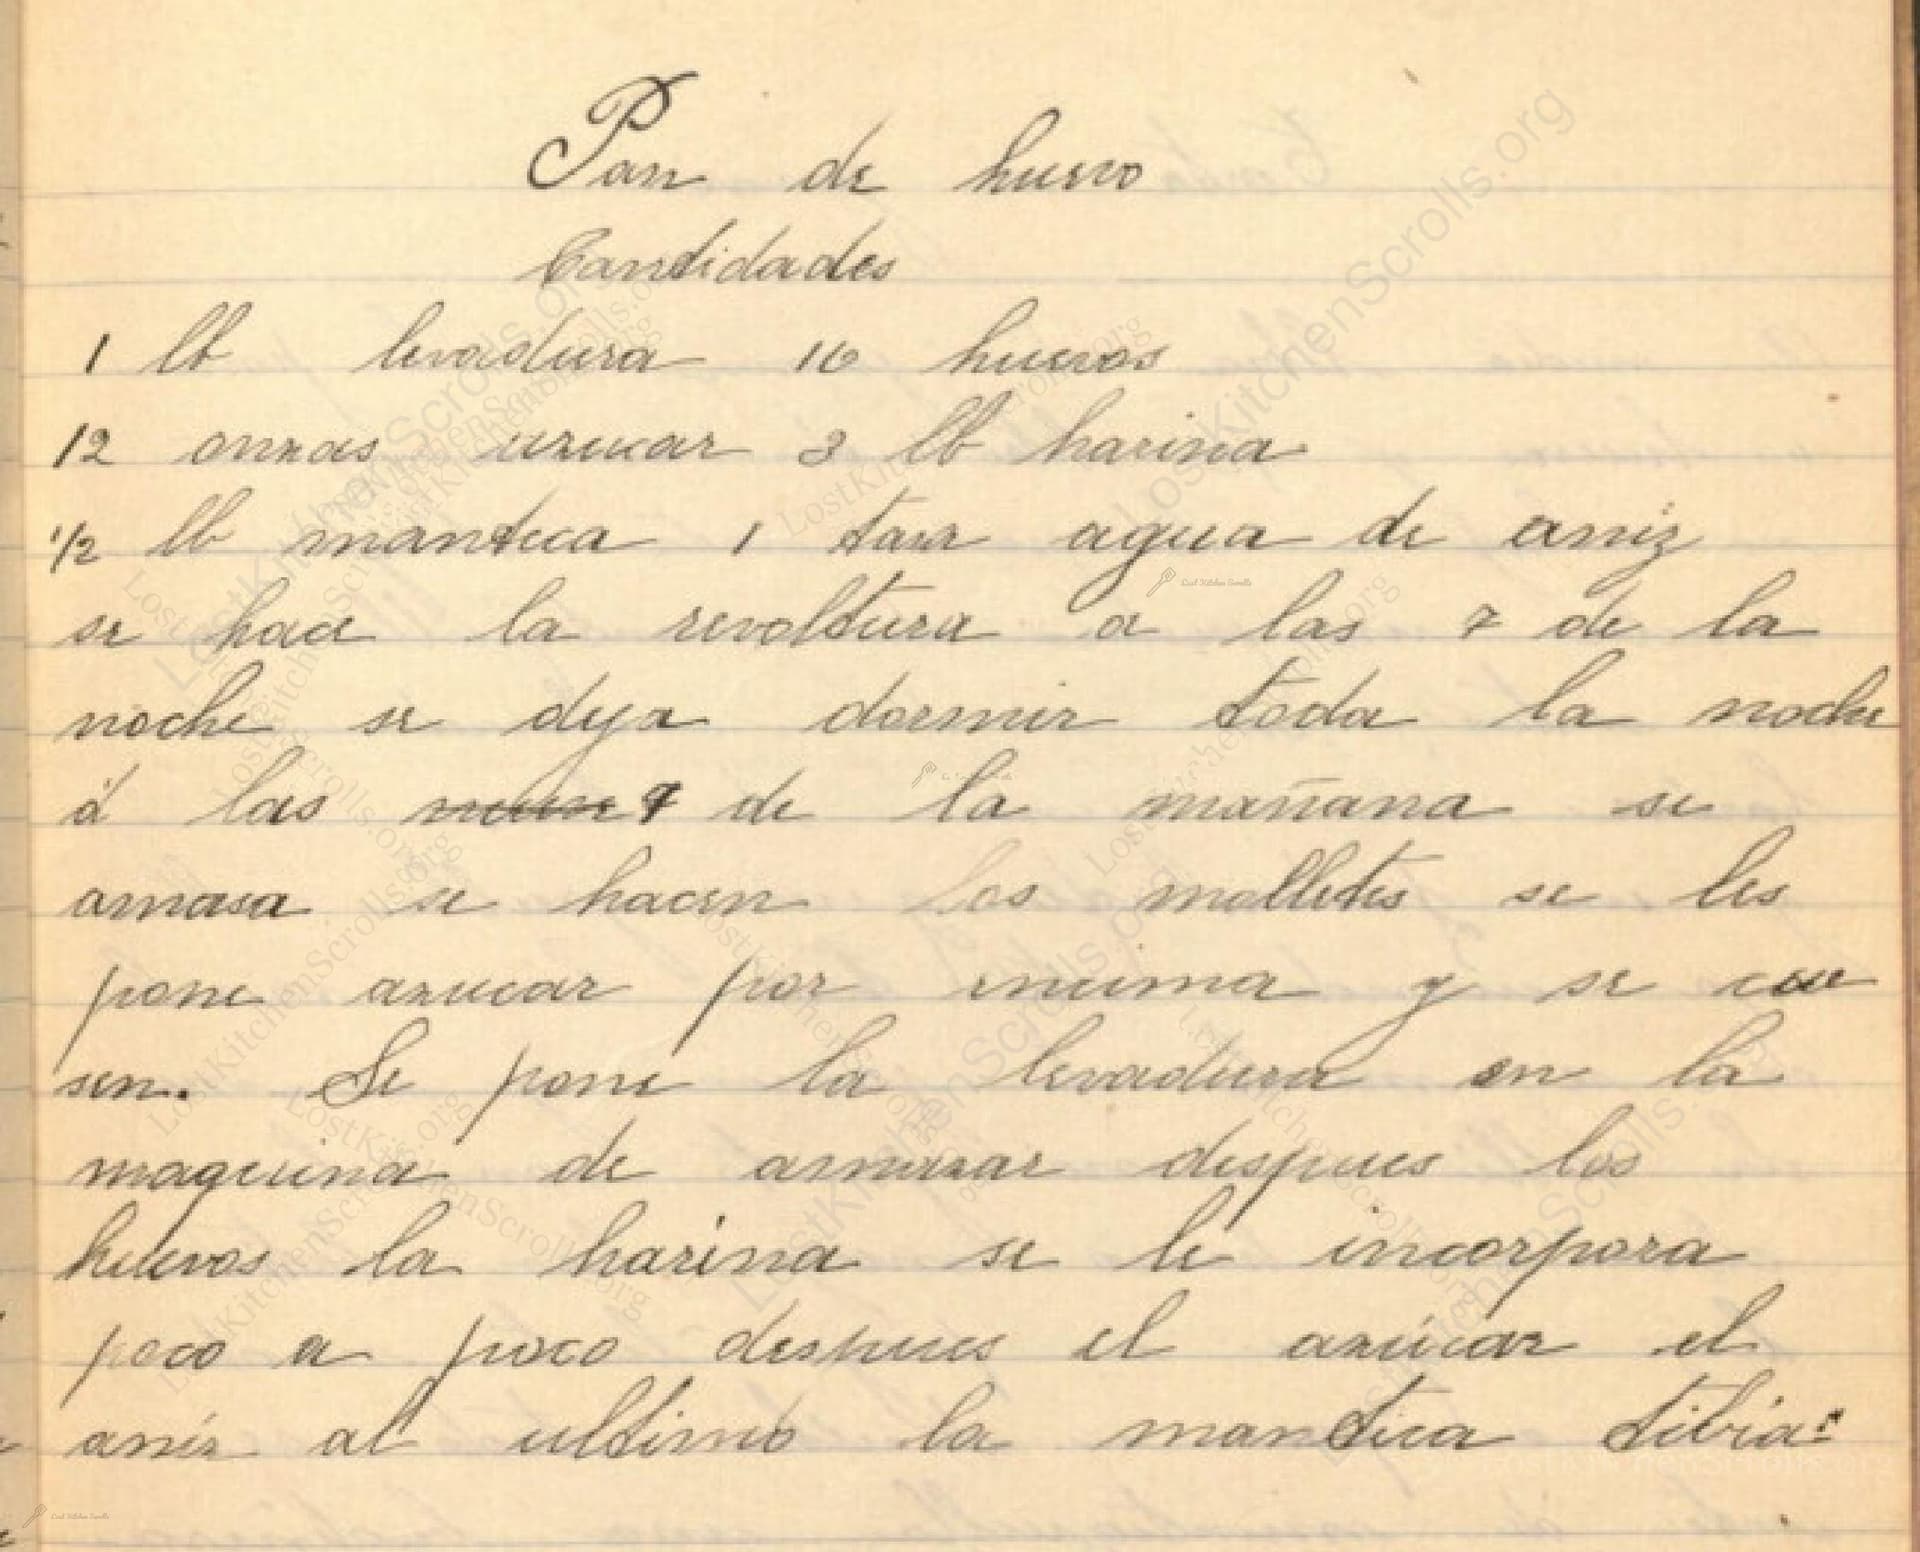 Pan de huevo
Cantidades
1 lb levadura 16 huevos
12 onzas azucar 3 lb harina
1/2 lb manteca 1 taza agua de aniz
se hace la revoltura a las 7 de la
noche se deja dormir toda la noche
á las 7 de la mañana se
amasa se hacen los molletes se les
pone azucar por encima y se cue
sen. Se pone la levadura en la
maquina de amazar despues los
huevos la harina se le incorpora
poco a poco despues el azúcar el
aniz al ultimo la manteca tibia.